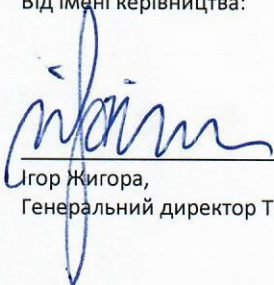 Від імені керівництва:
Ігор Жигора,
Генеральний директор Т